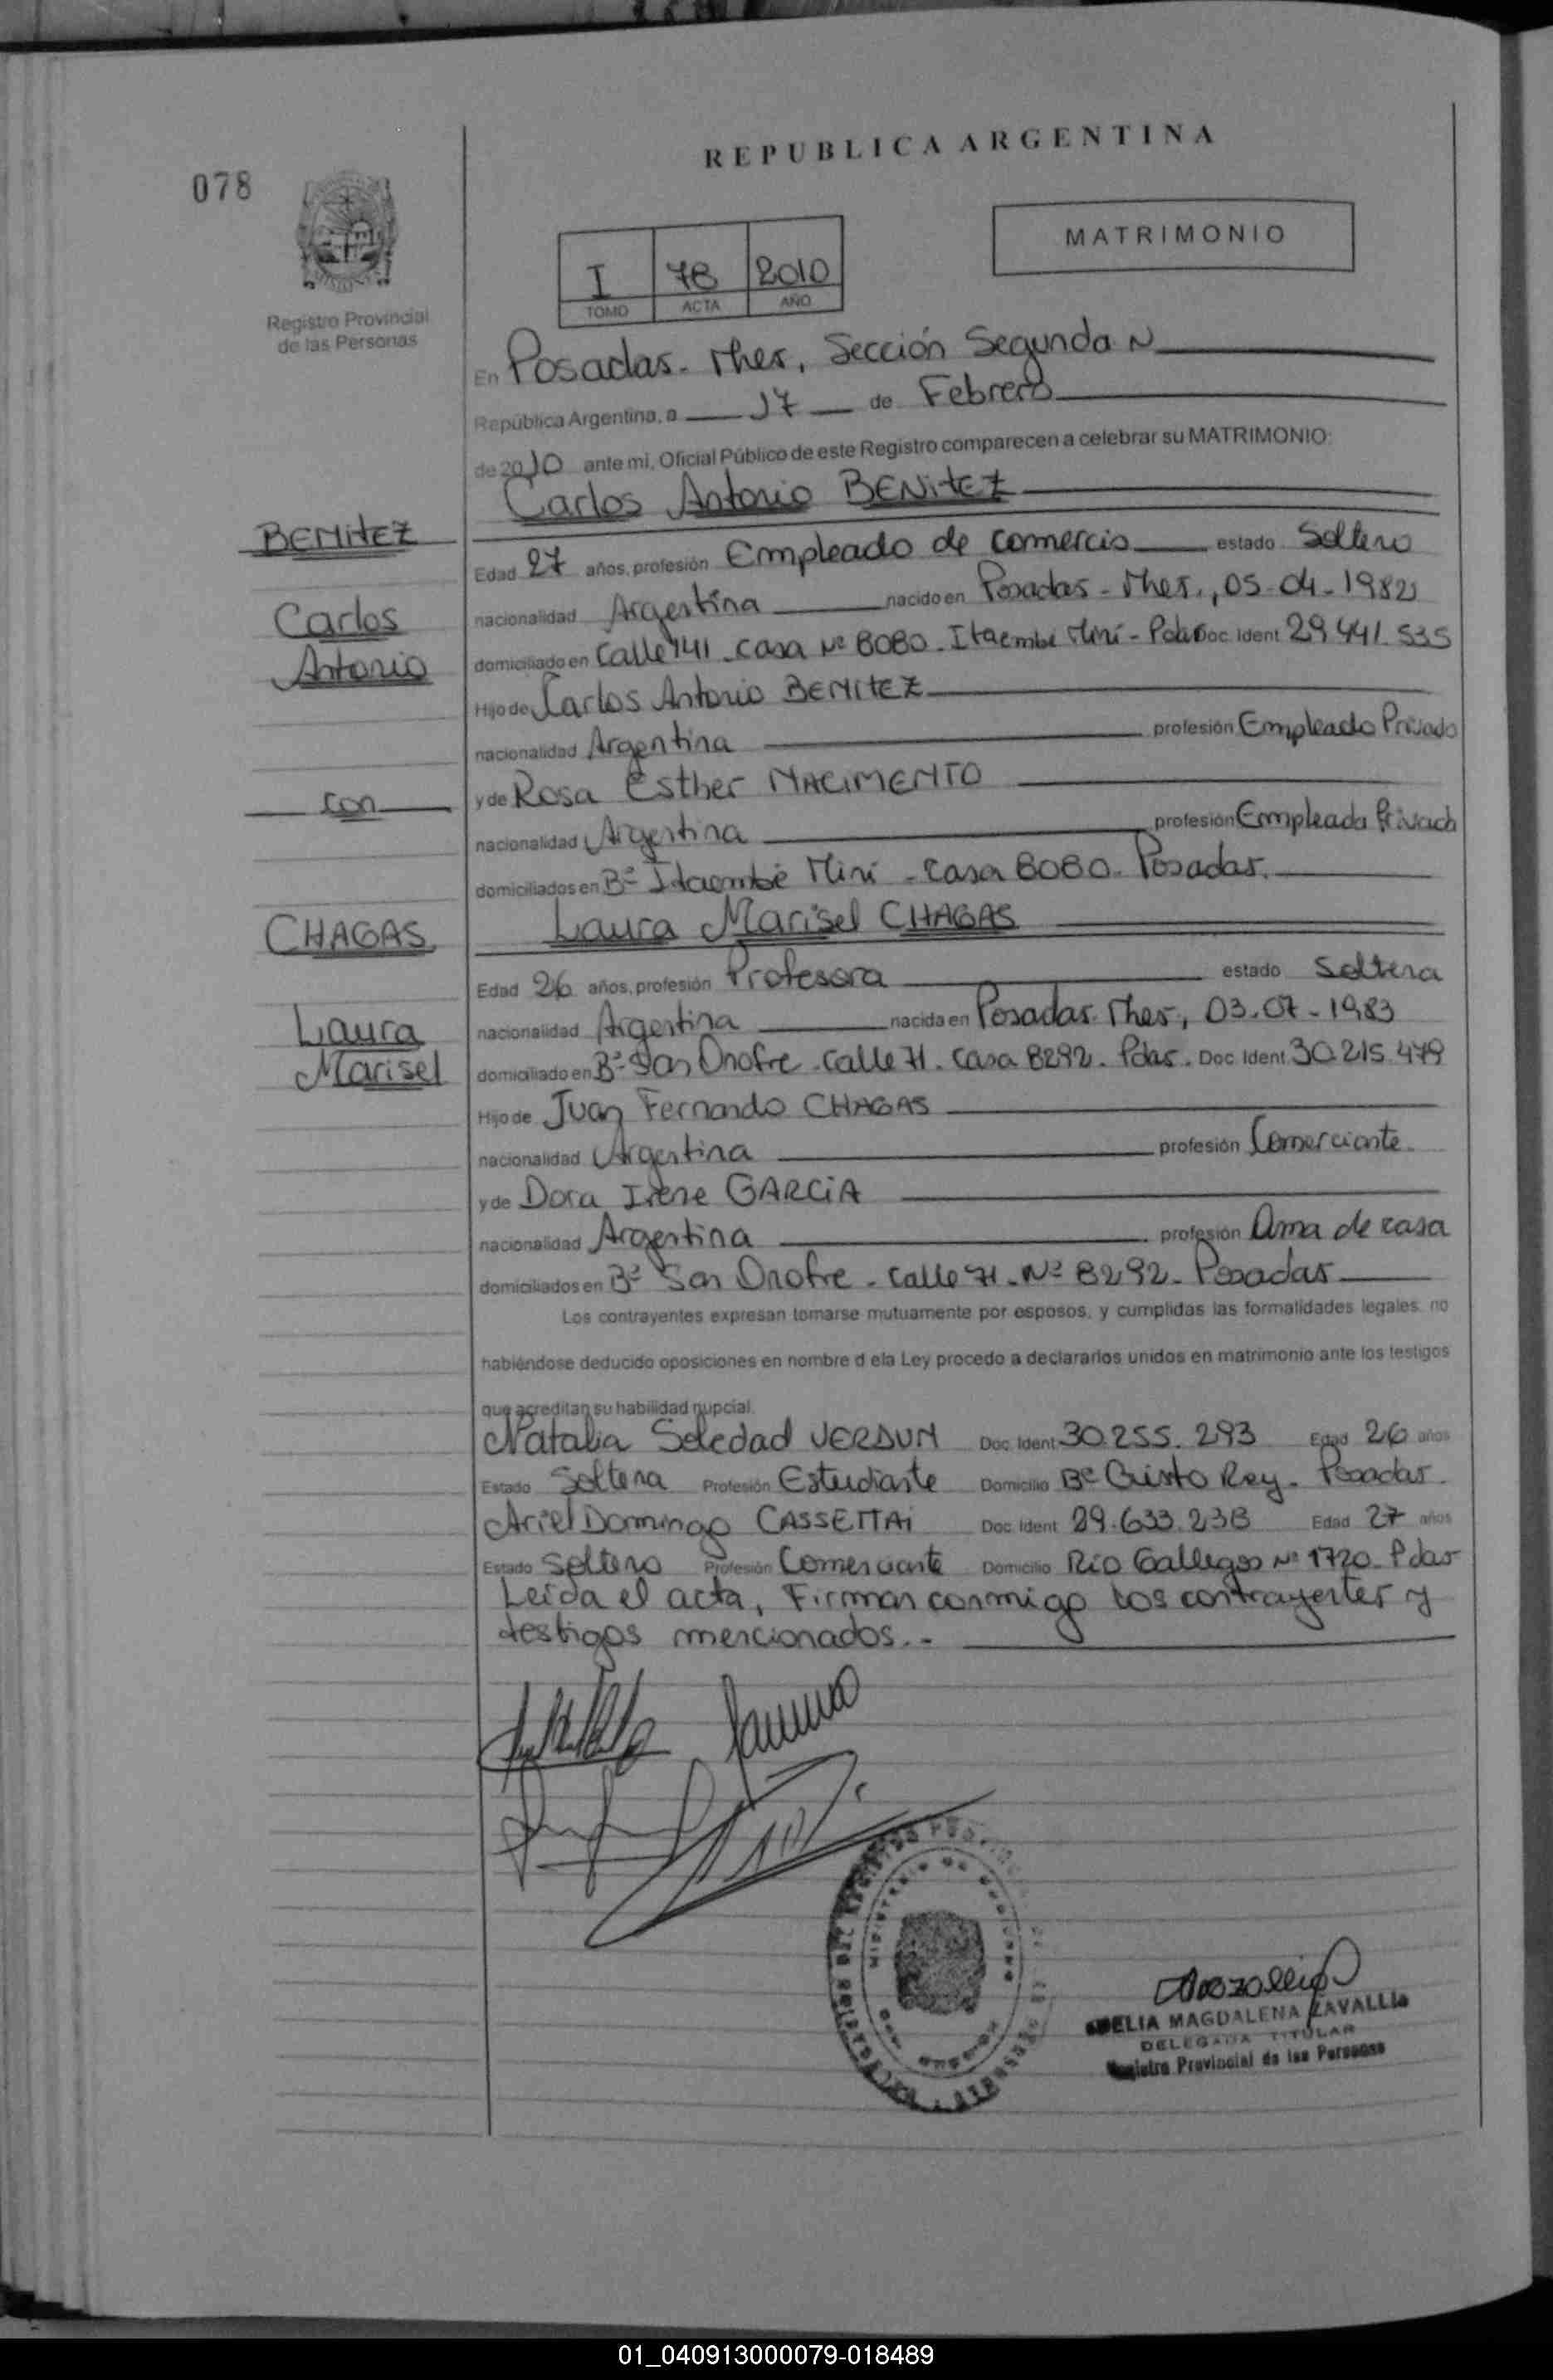 REPUBLICA ARGENTINA
078
MATRIMONIO
I 78 2010
TOMO ACTA AÑO
Registro Provincial
de las Personas
En Posadas - Mnes, Sección Segunda N
República Argentina, a 17 de Febrero
de 2010 ante mi, Oficial Público de este Registro comparecen a celebrar su MATRIMONIO:
Carlos Antonio BENITEZ
BENITEZ
Carlos
Antonio
con
CHAGAS
Laura
Marisel
Edad 27 años, profesión Empleado de comercio estado Soltero
nacionalidad Argentina nacido en Posadas - Mnes., 05-04-1982
domiciliado en Calle 141 - casa Nº 8080 - Itaembe Miní - Pdas Doc. Ident 29.441.535
Hijo de Carlos Antonio BENITEZ
nacionalidad Argentina profesión Empleado Privado
y de Rosa Esther NACIMENTO
nacionalidad Argentina profesión Empleada Privada
domiciliados en Bº Itaembé Miní - casa 8080 - Posadas.
Laura Marisel CHAGAS
Edad 26 años, profesión Profesora estado Soltera
nacionalidad Argentina nacida en Posadas - Mnes, 03-07-1983
domiciliado en Bº San Onofre - calle 71 - casa 8292 - Pdas. Doc. Ident 30.215.479
Hijo de Juan Fernando CHAGAS
nacionalidad Argentina profesión Comerciante
y de Dora Irene GARCiA
nacionalidad Argentina profesión Ama de casa
domiciliados en Bº San Onofre - calle 71 - Nº 8292 - Posadas
Los contrayentes expresan tomarse mutuamente por esposos, y cumplidas las formalidades legales, no
habiéndose deducido oposiciones en nombre d ela Ley procedo a declararlos unidos en matrimonio ante los testigos
que acreditan su habilidad nupcial.
Natalia Soledad VERDUN Doc. Ident 30.255.293 Edad 26 años
Estado Soltera Profesión Estudiante Domicilio Bº Cristo Rey - Posadas.
Ariel Domingo CASSETTAi Doc. Ident 29.633.238 Edad 27 años
Estado Soltero Profesión Comerciante Domicilio Río Gallegos Nº 1720 - Pdas
Leída el acta, Firman conmigo los contrayentes y
testigos mencionados.-
MAGDALENA ZAVALLIA
DELEGADA TITULAR
Registro Provincial de las Personas
01_040913000079-018489